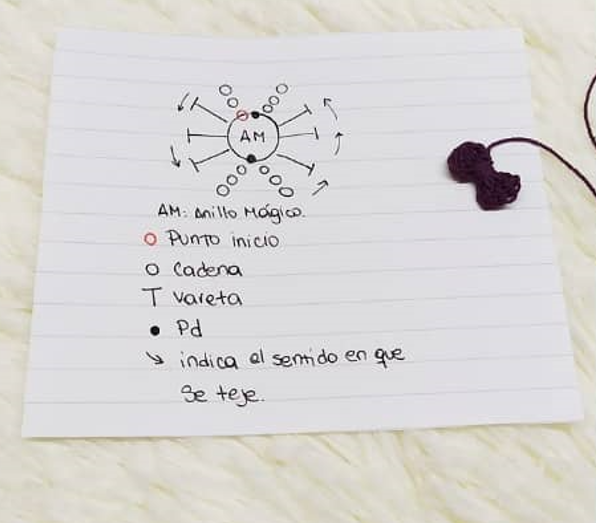 AM
AM: Anillo Mágico.
Punto inicio
Cadena
T vareta
Pd
indica el sentido en que
se teje.